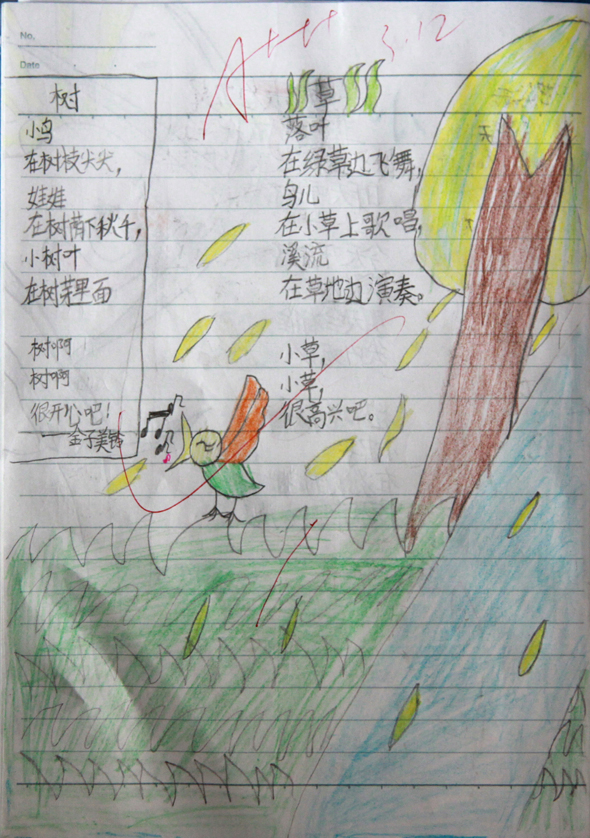 No.
Date
A+++ 3.12
树
小鸟
在树枝尖尖,
娃娃
在树荫下秋千,
小树叶
在树芽里面
树啊
树啊
很开心吧!
——金子美铃
草
落叶
在绿草边飞舞,
鸟儿
在小草上歌唱,
溪流
在草地边演奏。
小草,
小草,
很高兴吧。